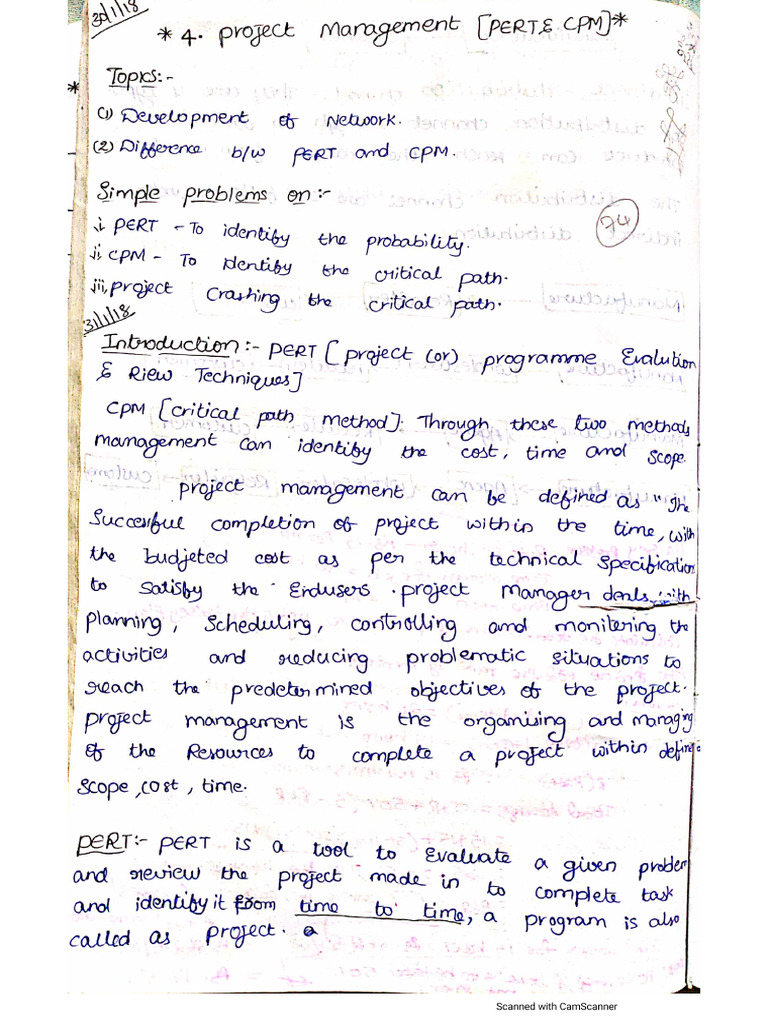 30/1/18
* 4. Project Management [PERT & CPM] *
* Topics:-
(1) Development of Network.
(2) Difference b/w PERT and CPM.
Simple problems on :-
i, PERT - To identify the probability.
ii, CPM - To identify the critical path.
iii, project crashing the critical path.
74
31/1/18
Introduction :- PERT [ project (or) programme Evalution
& Riew Techniques]
CPM [critical path method]: Through these two methods
management can identify the cost, time and scope
project management can be defined as "The
Successful completion of project within the time, with
the budjeted cost as per the technical specification
to satisby the Endusers. project manager deals with
planning, scheduling, controlling and monitering the
activities and reducing problematic situations to
reach the predetermined objectives of the project.
project management is the organising and managing
of the Resources to complete a project within define
scope, cost, time.
PERT:- PERT is a tool to Evaluate a given problem
and review the project made in to complete task
and identify it from time to time, a program is also
called as project.
Scanned with CamScanner